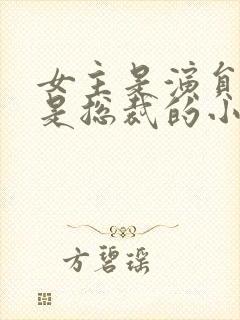 女主是演员
是总裁的小
方碧瑶